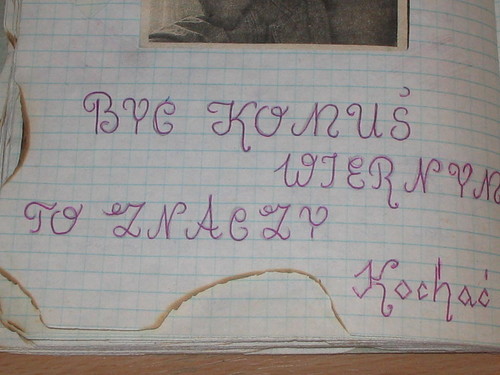 BYĆ KOMUŚ
WIERNYM
TO ZNACZY
Kochać